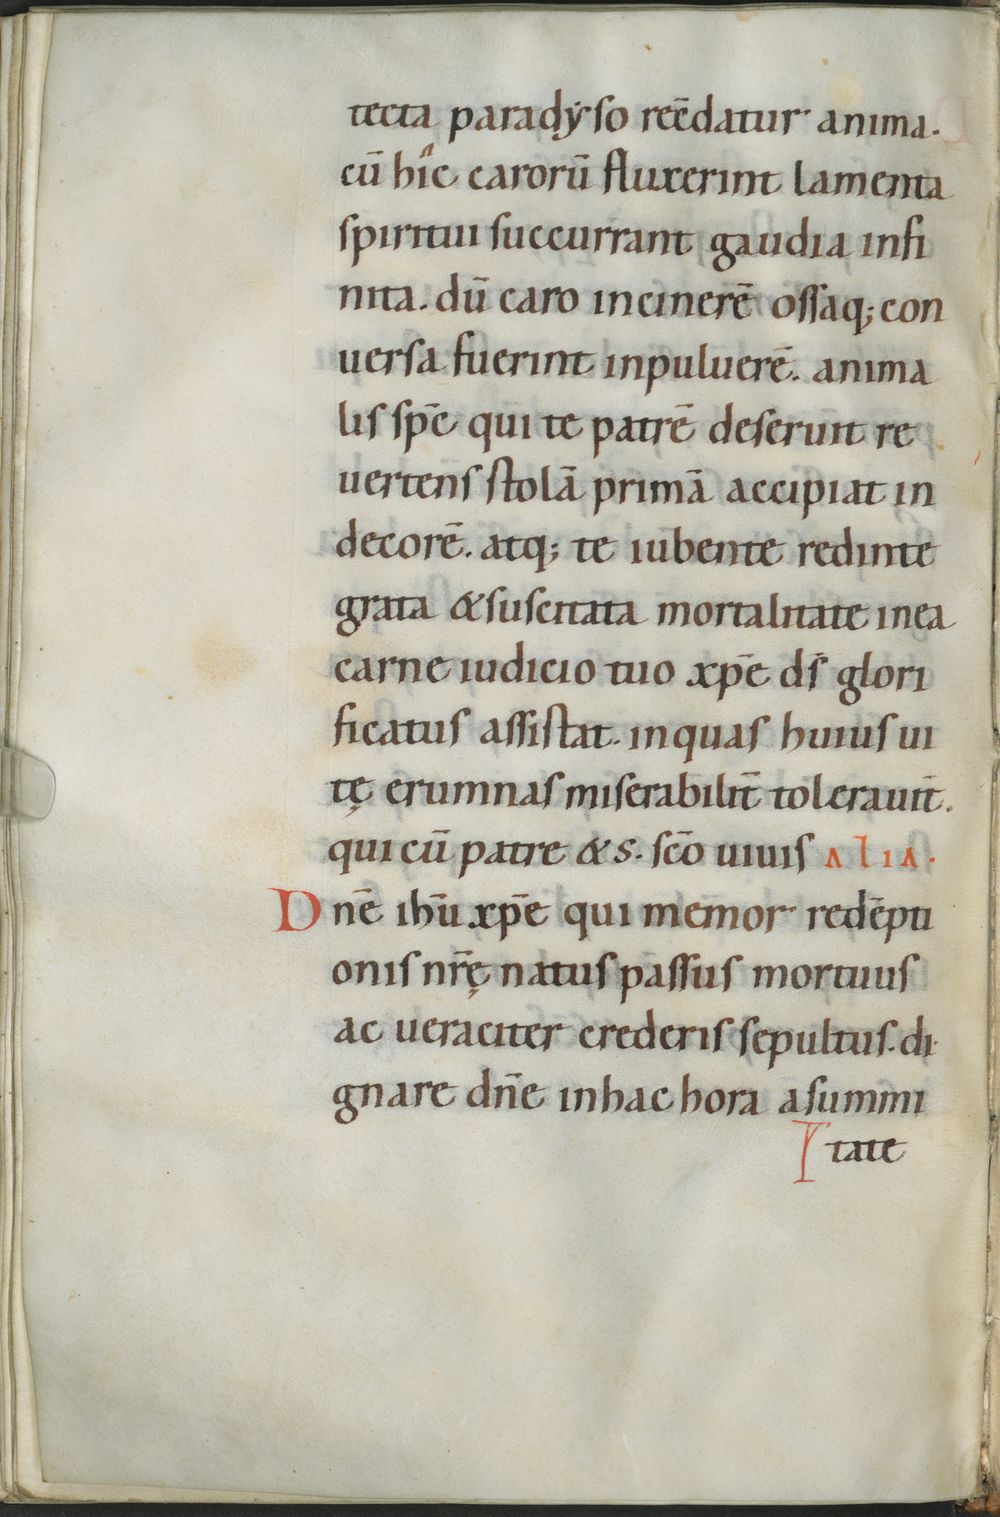 tecta paradẏſo recc̄datur anima.
cū hı̄c carorū fluxerint lamenta
ſpiritui ſuccurrant gaudia infi
nita. dū caro incinerē oſſaq; con
uerſa fuerint inpuluerē. anima
liſ ſpc̄ qui te patrē deſeruit re
uertenſ ſtolā primā accipiat in
decorē. atq; te iubente redinte
grata & ſuſcitata mortalitate inea
carne iudicio tuo xpē dſ̄ glori
ficatuſ aſſiſtat. inquaſ huiuſ ui
tę erumnaſ miſerabilit̄ tolerauit̄.
qui cū patre & s. ſc̄o uiuiſ ALIA.
Dnē ihū xpē qui memor redēpti
oniſ nr̄ę natuſ paſſuſ mortuuſ
ac ueraciter crederiſ ſepultuſ. di
gnare dn̄e inhac hora aſummi
tate